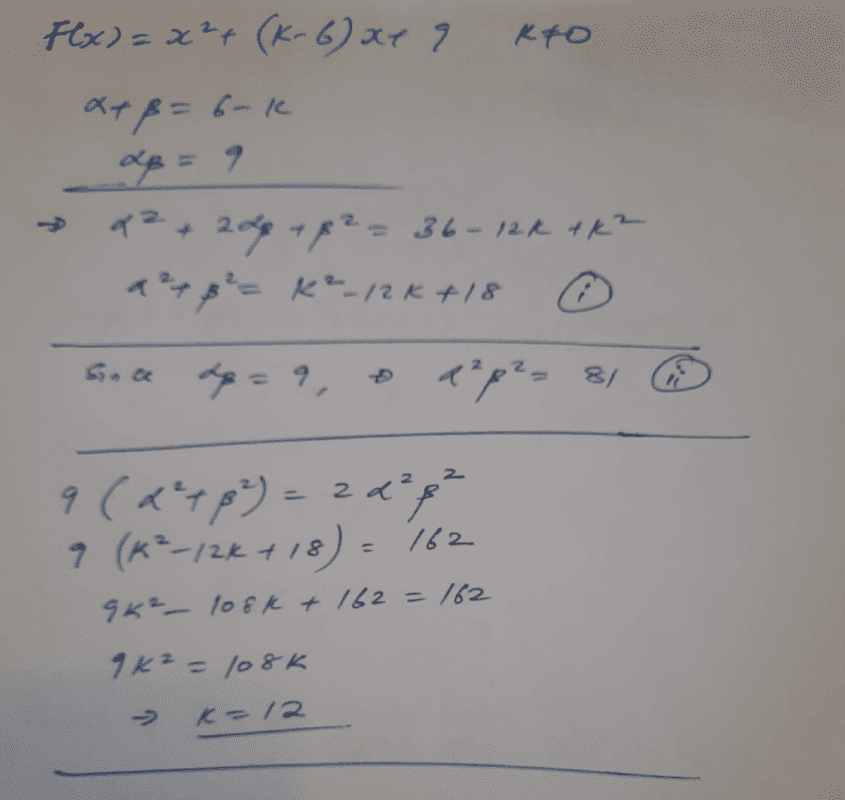 F(x) = x² + (K-6)x + 9 K≠0
α+β = 6-K
αβ = 9
→ α² + 2αβ + β² = 36 - 12K + K²
α² + β² = K² - 12K + 18 (i)
Since αβ = 9, ⇒ α²β² = 81 (ii)
9 (α² + β²) = 2α²β²
9 (K² - 12K + 18) = 162
9K² - 108K + 162 = 162
9K² = 108K
→ K = 12